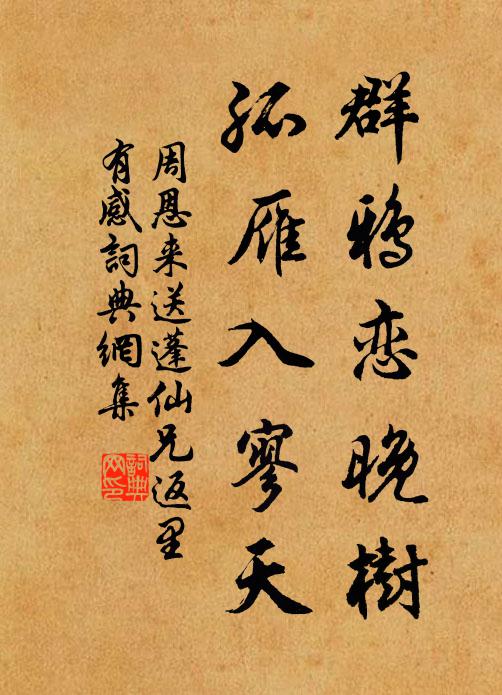 群鸦恋晚樹
孤雁入寥天
周恩来送蓬仙兄返里
有感詞典網集
詞典
网印